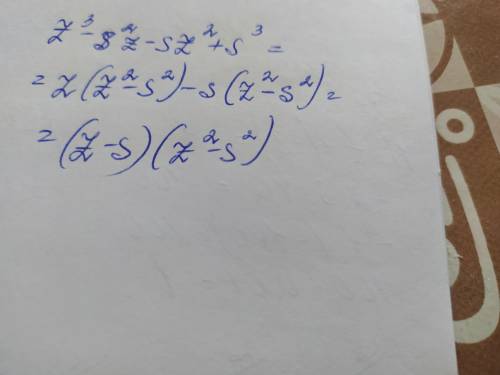 z³-s²z-sz²+s³=
=z(z²-s²)-s(z²-s²)=
=(z-s)(z²-s²)